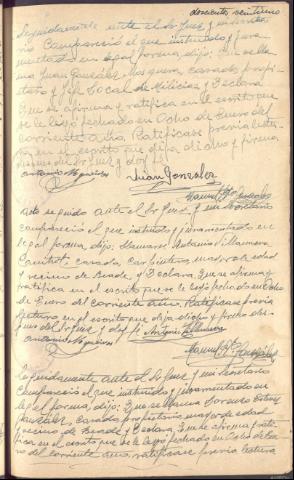 doscientos veintiuno
Seguidamente ante el Sr Juez y mi Secreta
rio Compareció el que instruido y jura
mentado en legal forma dijo: Que se lla
ma Juan Gonzalez casado, propie
tario y Jefe Local de Milicias y Declara
Que se afirma y ratifica en el escrito que
se le leyó fechado en Ocho de Enero del
corriente Año. Ratificase previa lectu
ra en el escrito que dijo di cho y firma
despues del Sr Juez y doy fe
Antonio Nogueiras
Juan Gonzalez
Manuel Gonzalez
Acto seguido ante el Sr Juez y mi Secretario
compareció el que instruido y juramentado en
legal forma, dijo: llamarse Antonio Villanueva
casado, Carpintero, mayor de edad
y vecino de Beade, y Declara: Que se afirma y
ratifica en el escrito que se le leyó fechado en Ocho
de Enero del corriente año. Ratificase previa
lectura en el escrito que dijo dicho y firma des
pues del Sr Juez y doy fe Antonio Villanueva
Antonio Nogueiras
Manuel Gonzalez
Seguidamente ante el Sr Juez y mi Secretario
Compareció el que instruido y juramentado en
legal forma, dijo: Que se llama Lorenzo Estevez
Gonzalez, casado propietario mayor de edad
vecino de Beade y Declara: Que se afirma y rati-
fica en el escrito que se le leyó fechado en Ocho de Ene
ro del corriente año, ratificase previa lectura